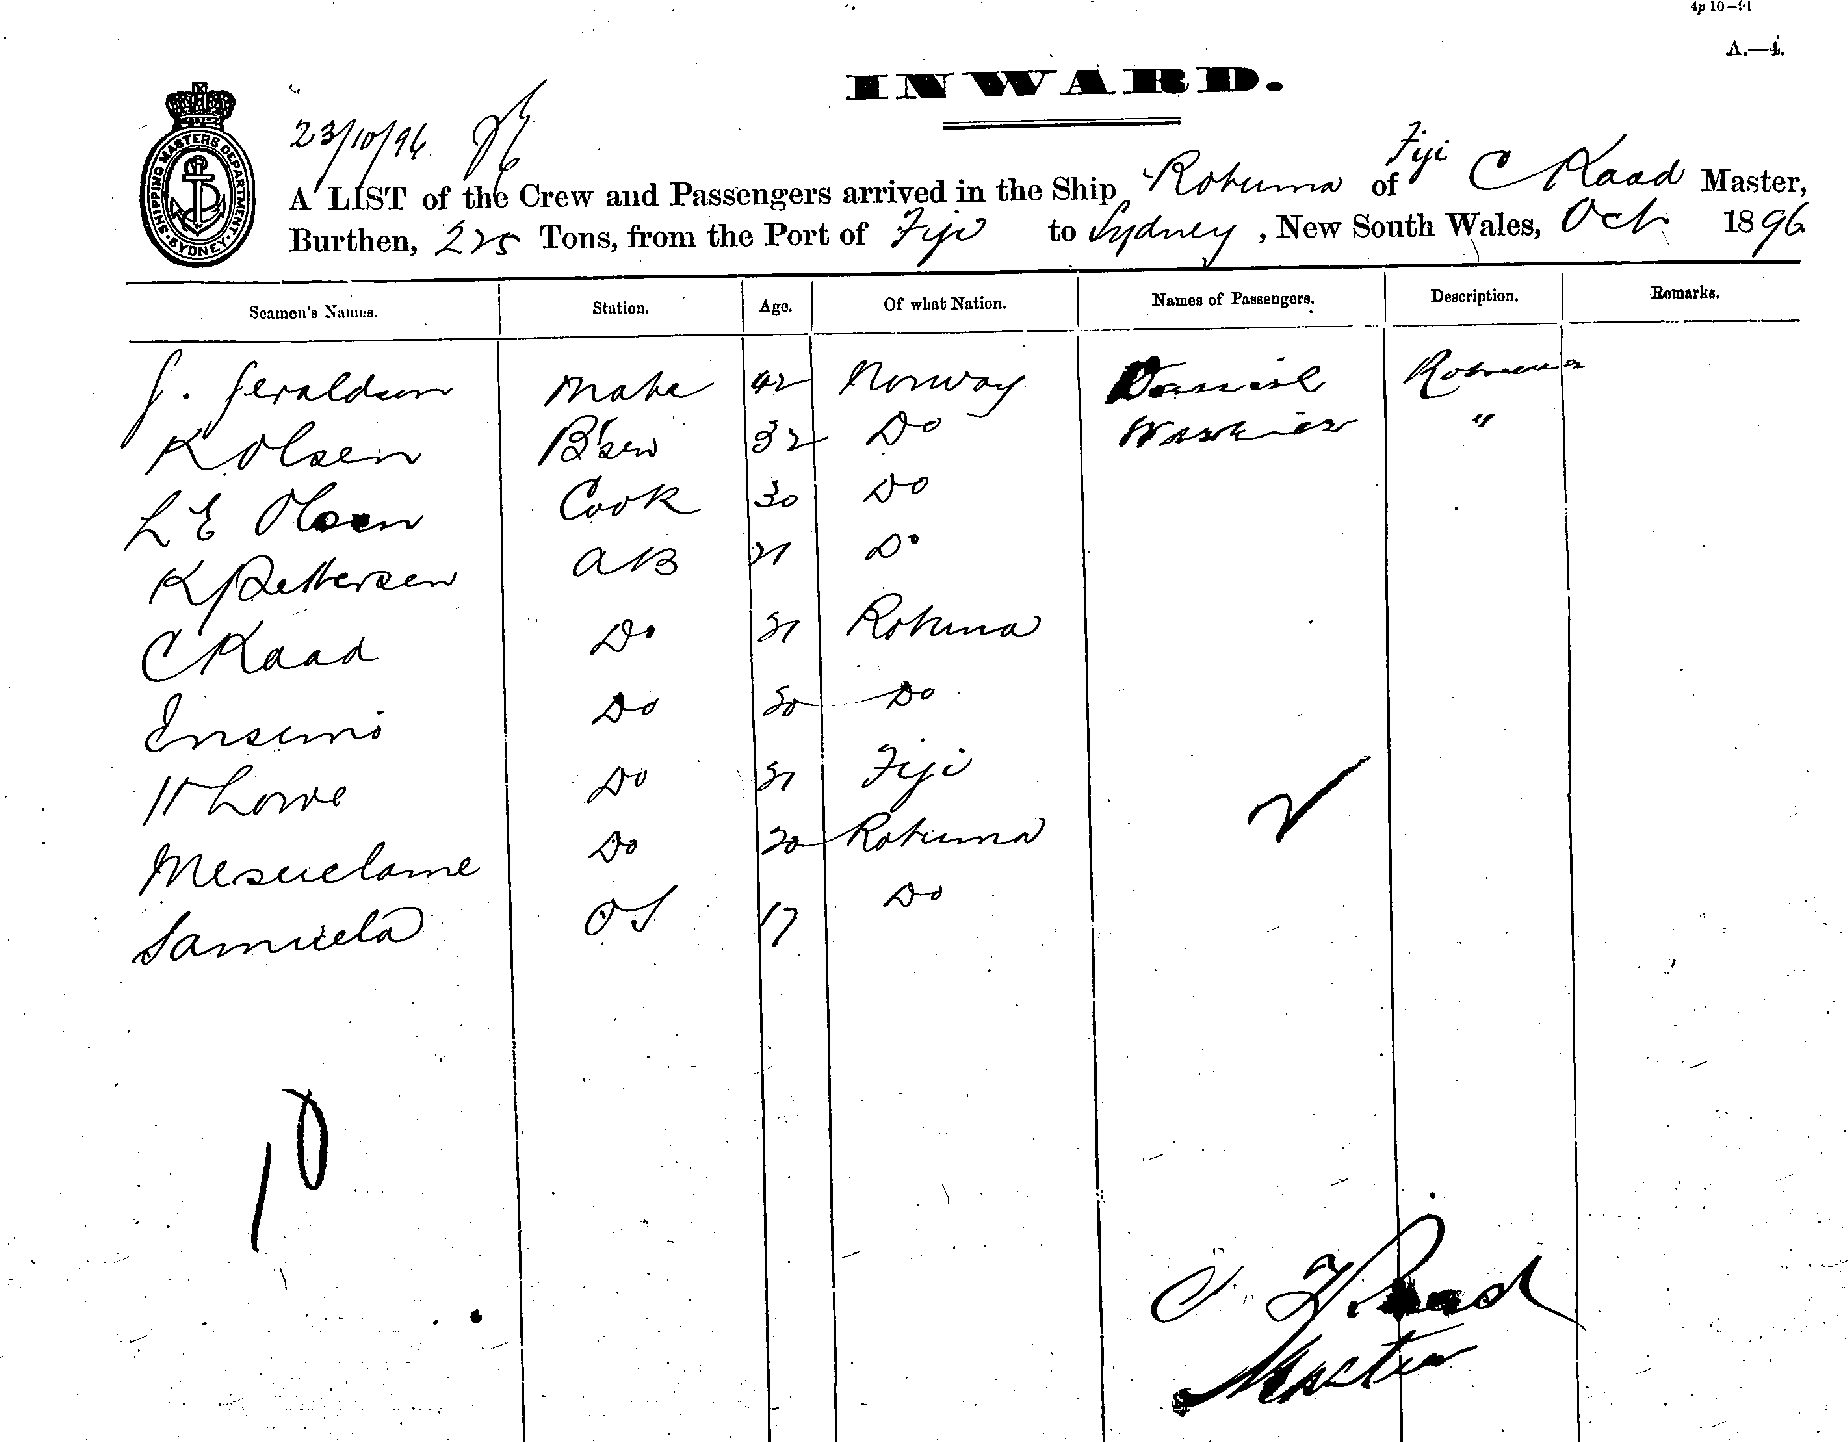 4p 10—91
A.—4.
INWARD.
SHIPPING MASTERS DEPARTMENT. SYDNEY.
23/10/96
Fiji
A LIST of the Crew and Passengers arrived in the Ship Rotuma of C Kaad Master,
Burthen, 225 Tons, from the Port of Fiji to Sydney, New South Wales, Oct 1896
Seamen's Names. Station. Age. Of what Nation. Names of Passengers. Description. Remarks.
J. Geraldson Mate 42 Norway Daniel Rotuma
K Olsen B'sen 32 Do "
L E Olsen Cook 30 Do
K Pettersen AB 21 Do
C Kaad Do 21 Rotuma
Do 20 Do
Lowe Do 21 Fiji
Do 20 Rotuma
Samuela OS 17 Do
10
C Kaad
Master